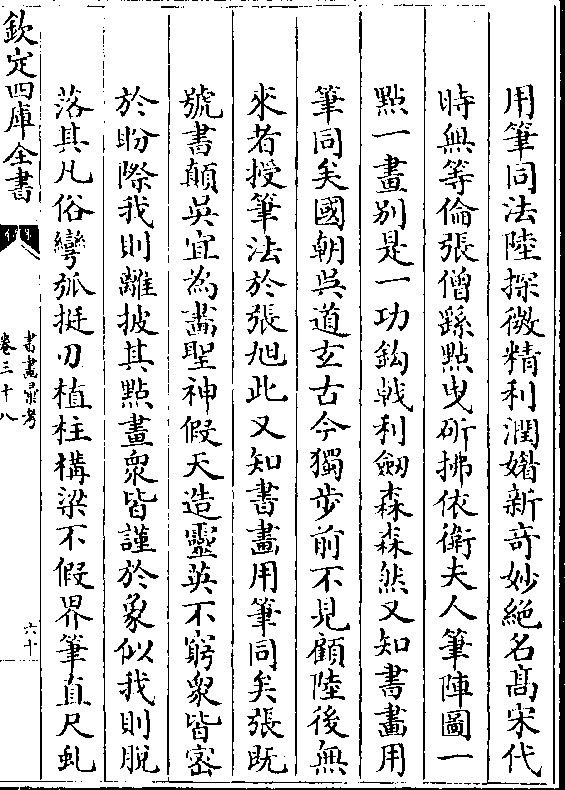 用筆同法陸探微精利潤媚新奇妙絶名髙宋代
時無等倫張僧繇點曵斫拂依衛夫人筆陣圖一
點一畫别是一功鈎戟利劒森森然又知書畫用
筆同矣國朝吳道玄古今獨步前不見顧陸後無
來者授筆法於張旭此又知書畫用筆同矣張既
號書顛吳宜為畵聖神假天造靈英不窮衆皆密
於盼際我則離披其點畫衆皆謹於象似我則脫
落其凡俗彎弧挺刃植柱構梁不假界筆直尺虬
欽定四庫全書
書畵彚考
卷三十八
六十